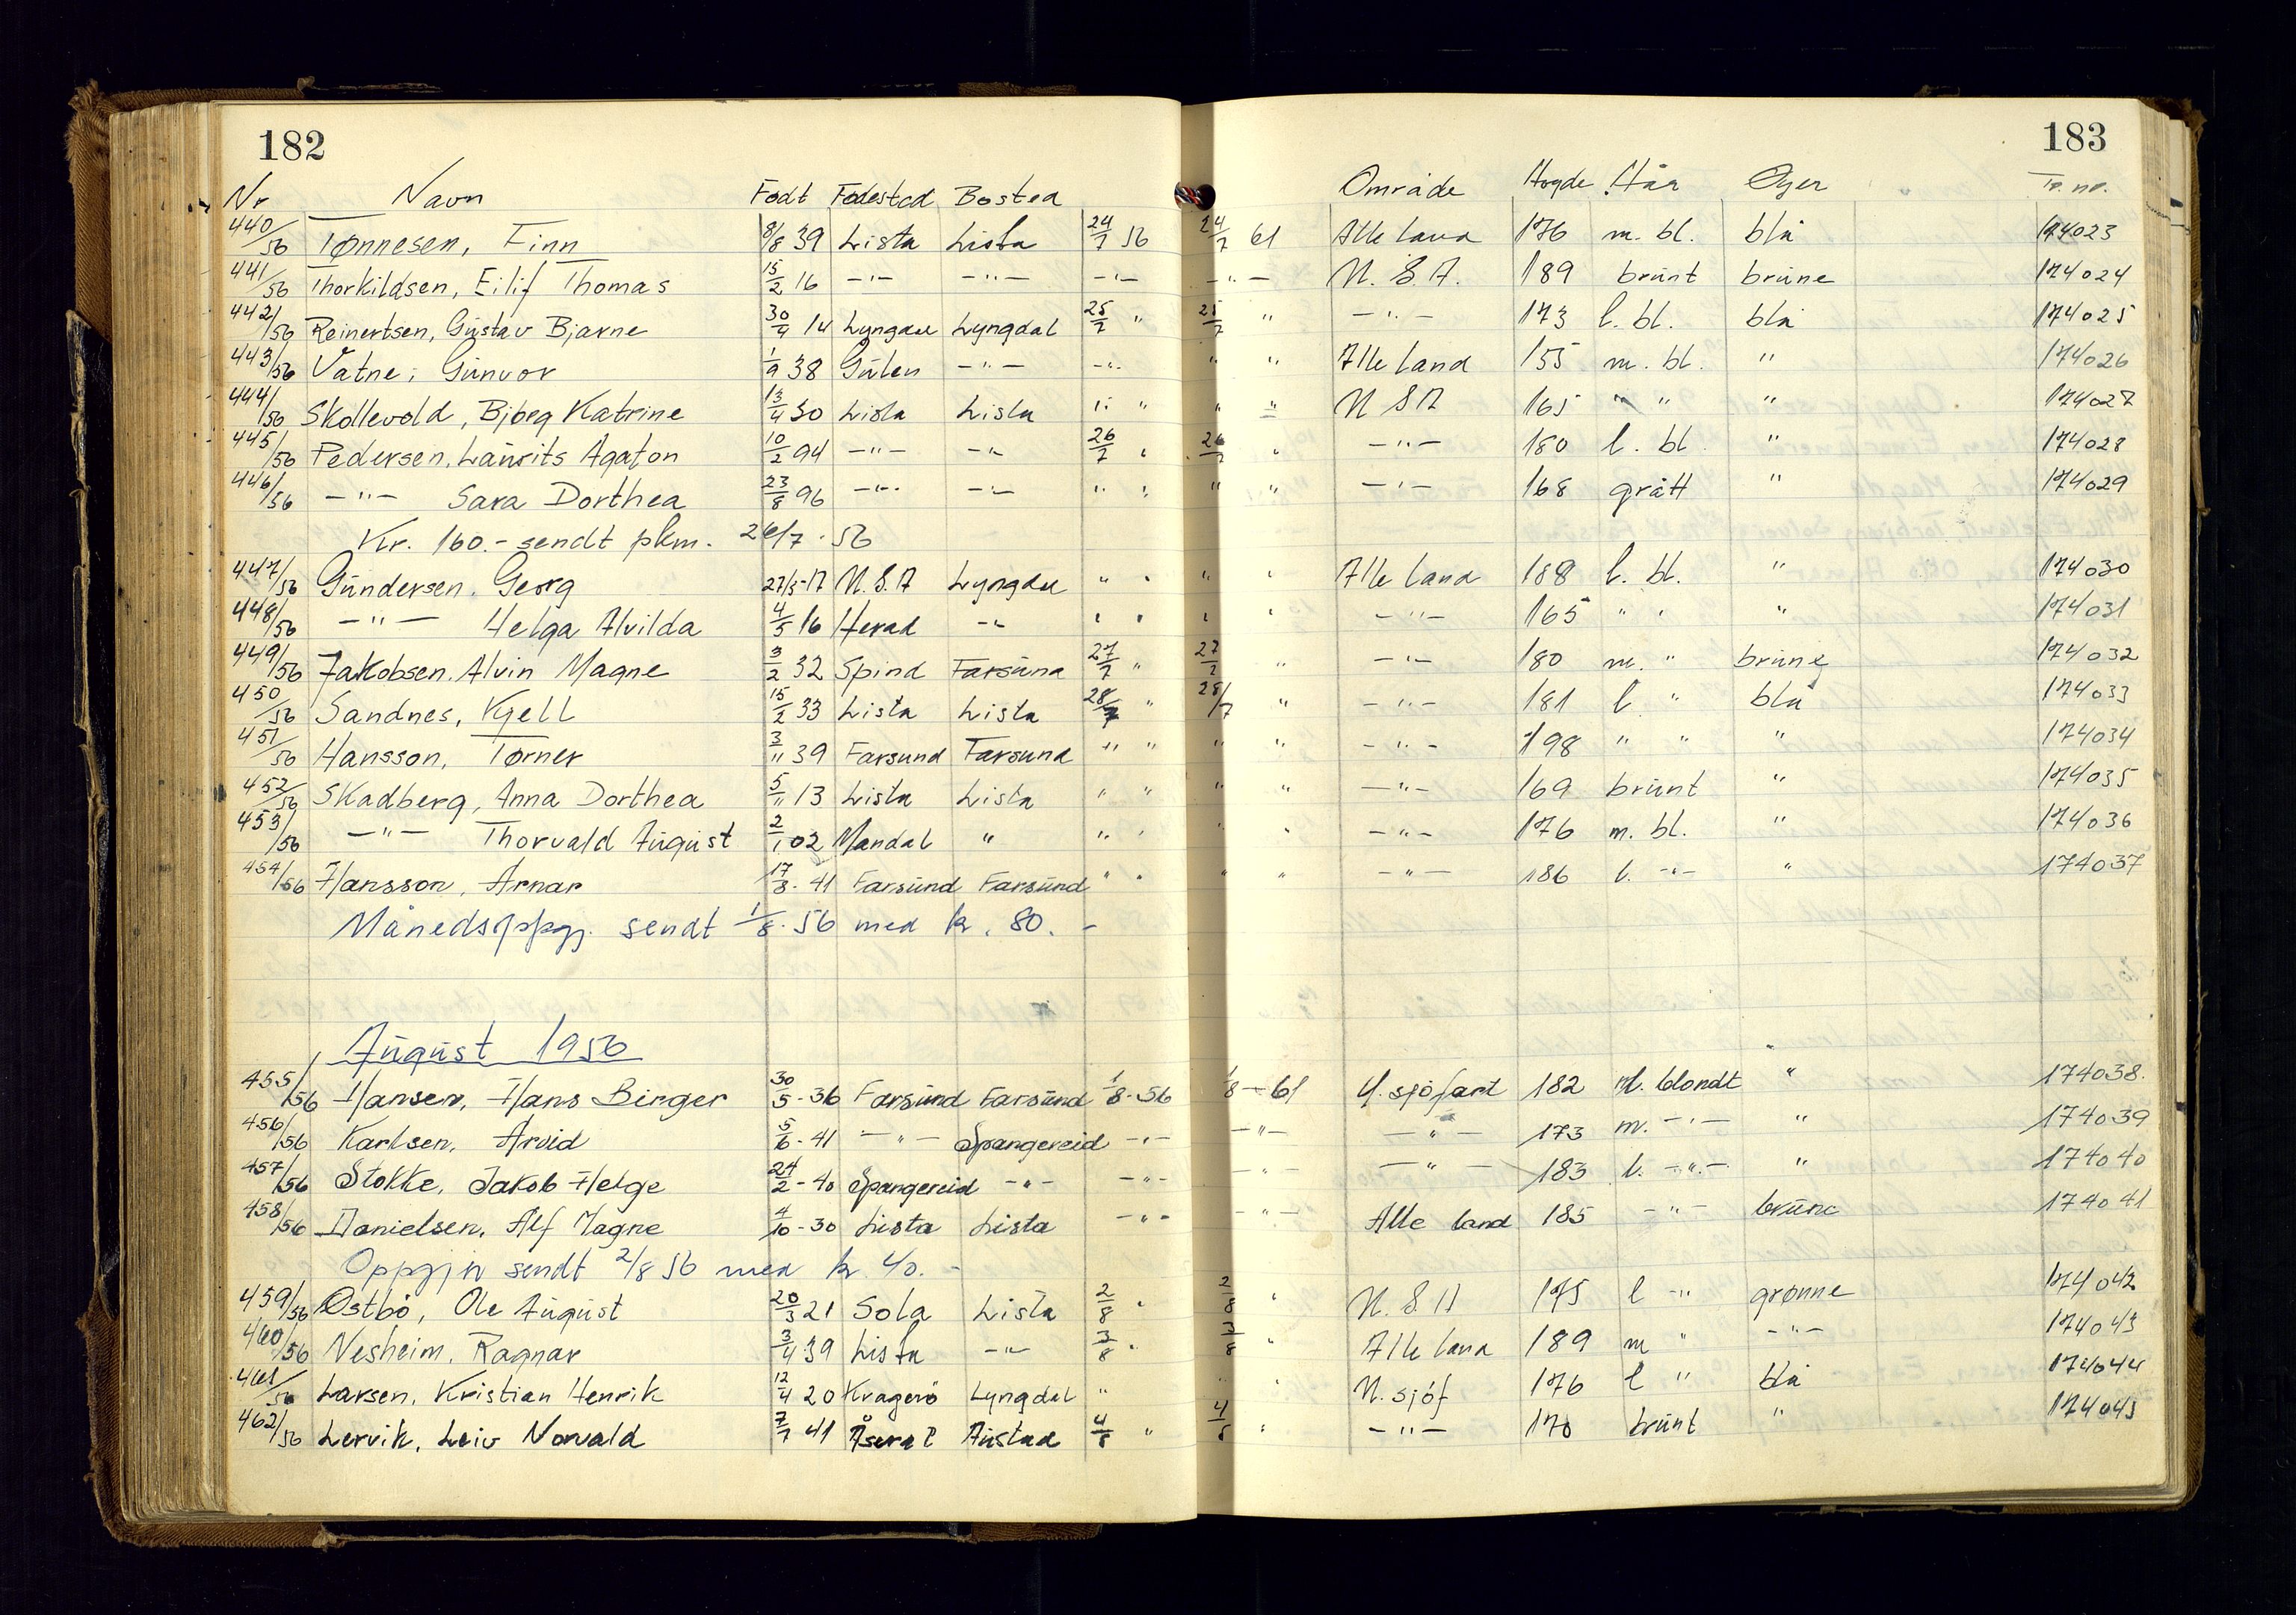 182
183
Nr Navn Født Fødested Bosted Område Høyde Hår Øyer Tr. nr.
440/56 Tønnesen, Finn 8/8 39 Lista Lista 24/7 56 24/7 61 Alle land 176 m. bl. blå 174023
441/56 Thorkildsen, Eilif Thomas 15/2 16 —"— —"— —"— —"— U.S.A. 189 brunt brune 174024
442/56 Reinertsen, Gustav Bjarne 14 Lyngdal Lyngdal 25/7 " 25/7 " —"— 173 l. bl. blå 174025
443/56 Vatne, Gunvor 1/9 38 Gulen —"— —"— " " Alle land 155 m. bl. " 174026
444/56 Skollevold, Bjørg Katrine 13/4 30 Lista Lista " " " " U S A 165 " " " 174027
445/56 Pedersen, Laurits Agaton 10/2 94 —"— —"— 26/7 " 26/7 " —"— 180 l. bl. " 174028
446/56 —"— Sara Dorthea 23/8 96 —"— —"— " " " " —"— 168 grått " 174029
Kr. 160.- sendt pkm. 26/7.56
447/56 Gundersen, Georg 27/5-17 U.S.A Lyngdal " " " " Alle land 188 l. bl. " 174030
448/56 —"— Helga Alvilda 4/5 16 Herad —"— " " " " —"— 165 " " " 174031
449/56 Jakobsen, Alvin Magne 3/2 32 Spind Farsund 27/7 " 27/7 " —"— 180 m. " brune 174032
450/56 Sandnes, Kjell 15/2 33 Lista Lista 28/7 " 28/7 " —"— 181 l " blå 174033
451/56 Hansson, Tørner 3/11 39 Farsund Farsund " " " " —"— 198 " " " 174034
452/56 Skadberg, Anna Dorthea 5/11 13 Lista Lista " " " " —"— 169 brunt " 174035
453/56 —"— Thorvald August 2/1 02 Mandal " " " " " —"— 176 m. bl. " 174036
454/56 Hansson, Arnar 17/8-41 Farsund Farsund " " " " —"— 186 l. —"— " 174037
Månedsoppgj. sendt 1/8.56 med kr. 80.-
August 1956
455/56 Hansen, Hans Birger 30/5-36 Farsund Farsund 1/8-56 1/8-61 U.sjøfart 182 m. blondt " 174038.
456/56 Karlsen, Arvid 5/6-41 —"— Spangereid —"— —"— —"— 173 m. —"— " 174039
457/56 Stokke, Jakob Helge 24/2-40 Spangereid —"— —"— —"— —"— 183 l. —"— " 174040
458/56 Danielsen, Alf Magne 4/10-30 Lista Lista —"— —"— Alle land 185 —"— brune 174041
Oppgjør sendt 2/8 56 med kr 40.-
459/56 Østbø, Ole August 20/3 21 Sola Lista 2/8 " 2/8 " U.S.A 175 l —"— grønne 174042
460/56 Nesheim, Ragnar 3/4 39 Lista —"— 3/8 " 3/8 " Alle land 189 m " —"— 174043
461/56 Larsen, Kristian Henrik 12/4 20 Kragerø Lyngdal " " " U.sjøf 176 l " blå 174044
462/56 Lervik, Leiv Norvald 7/7 41 Åseral Austad 4/8 " 4/8 " —"— 170 brunt " 174045